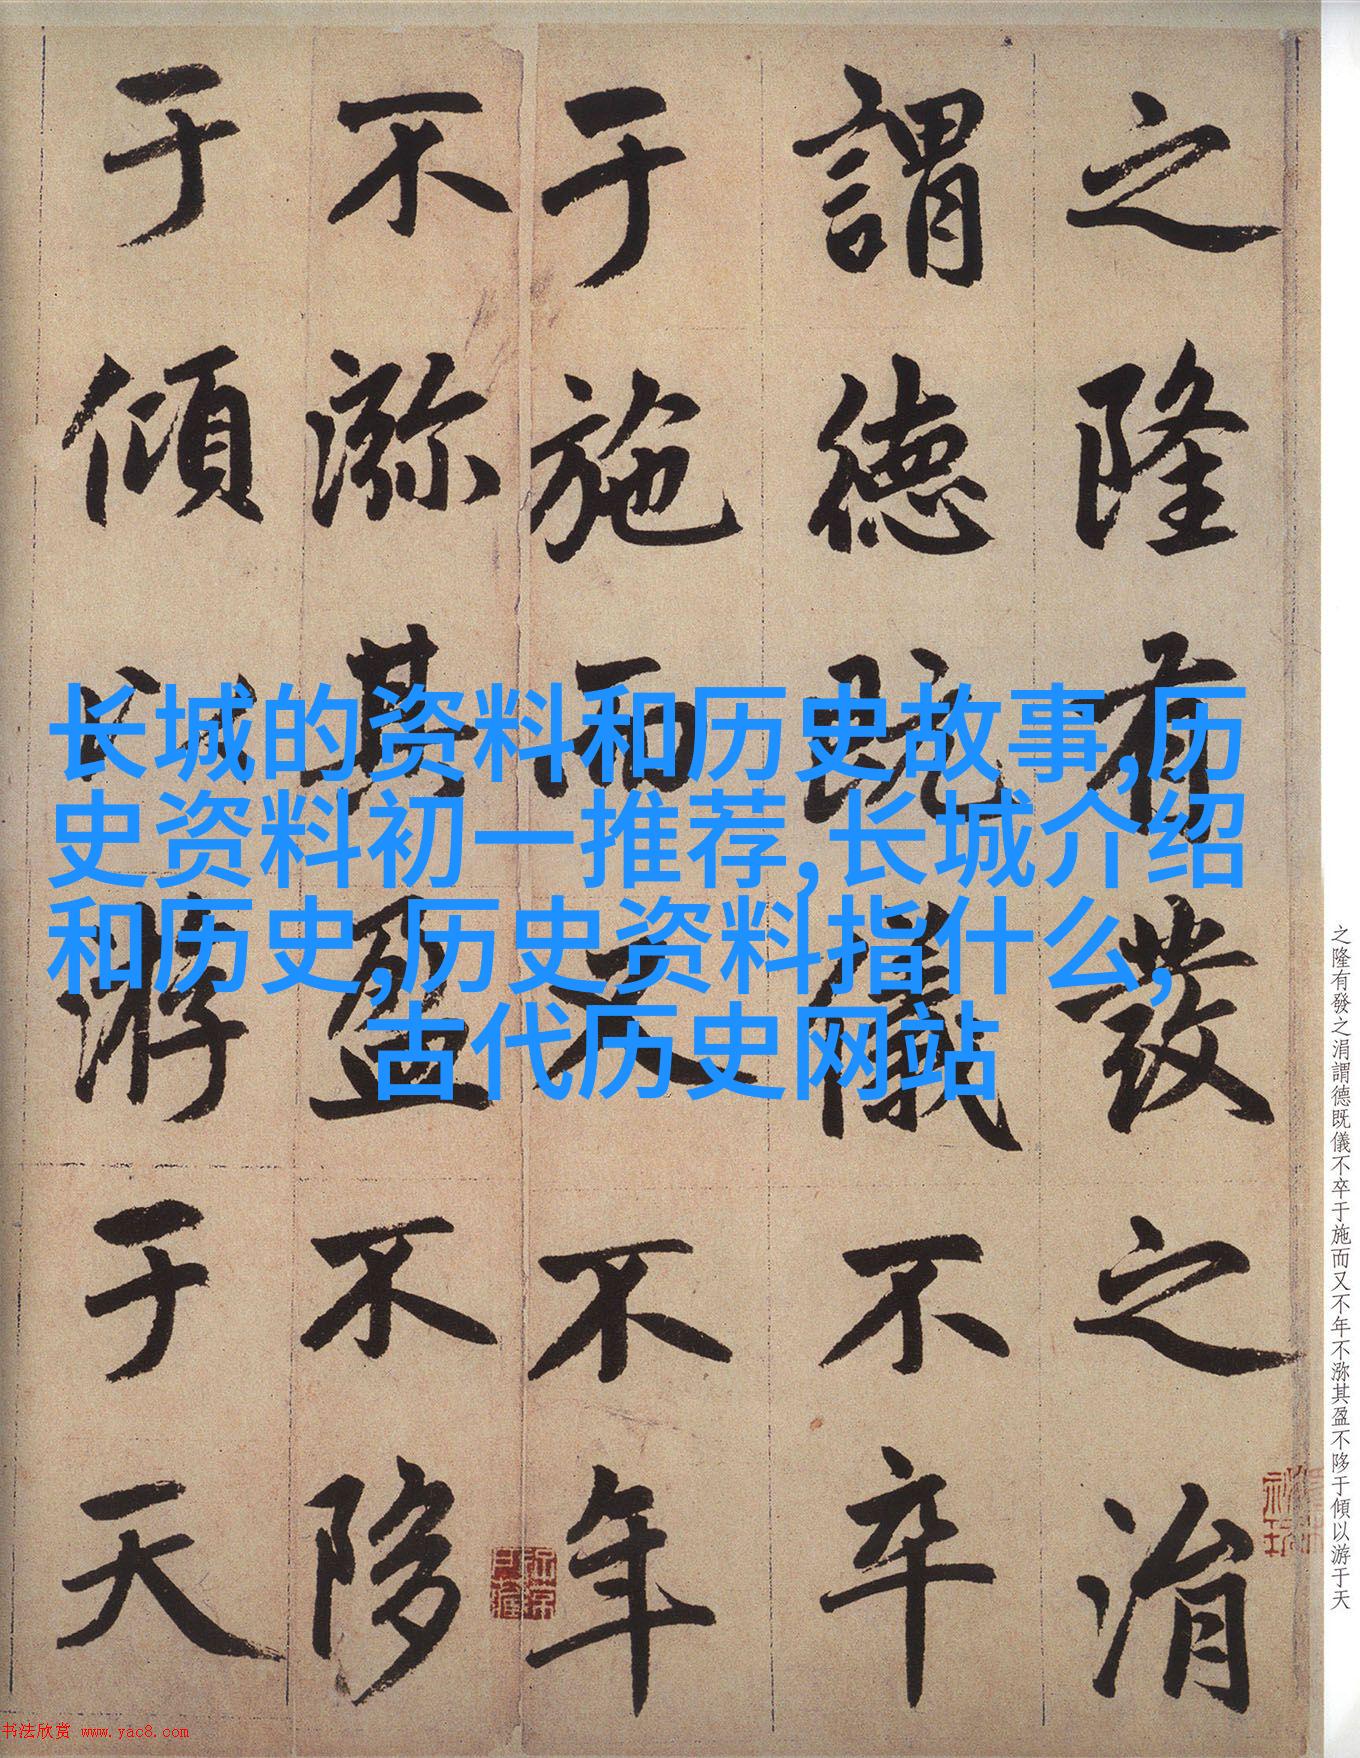 之隆有發之涓
謂德既儀不卒
于施而又不年
不㳽其盈不陊
于傾以游于天
长城的资料和历史故事,历
史资料初一推荐,长城介绍
和历史,历史资料指什么,
古代历史网站
之隆有發之涓謂德既儀不卒于施而又不年不㳽其盈不陊于傾以游于天
书法欣赏 www.yac8.com